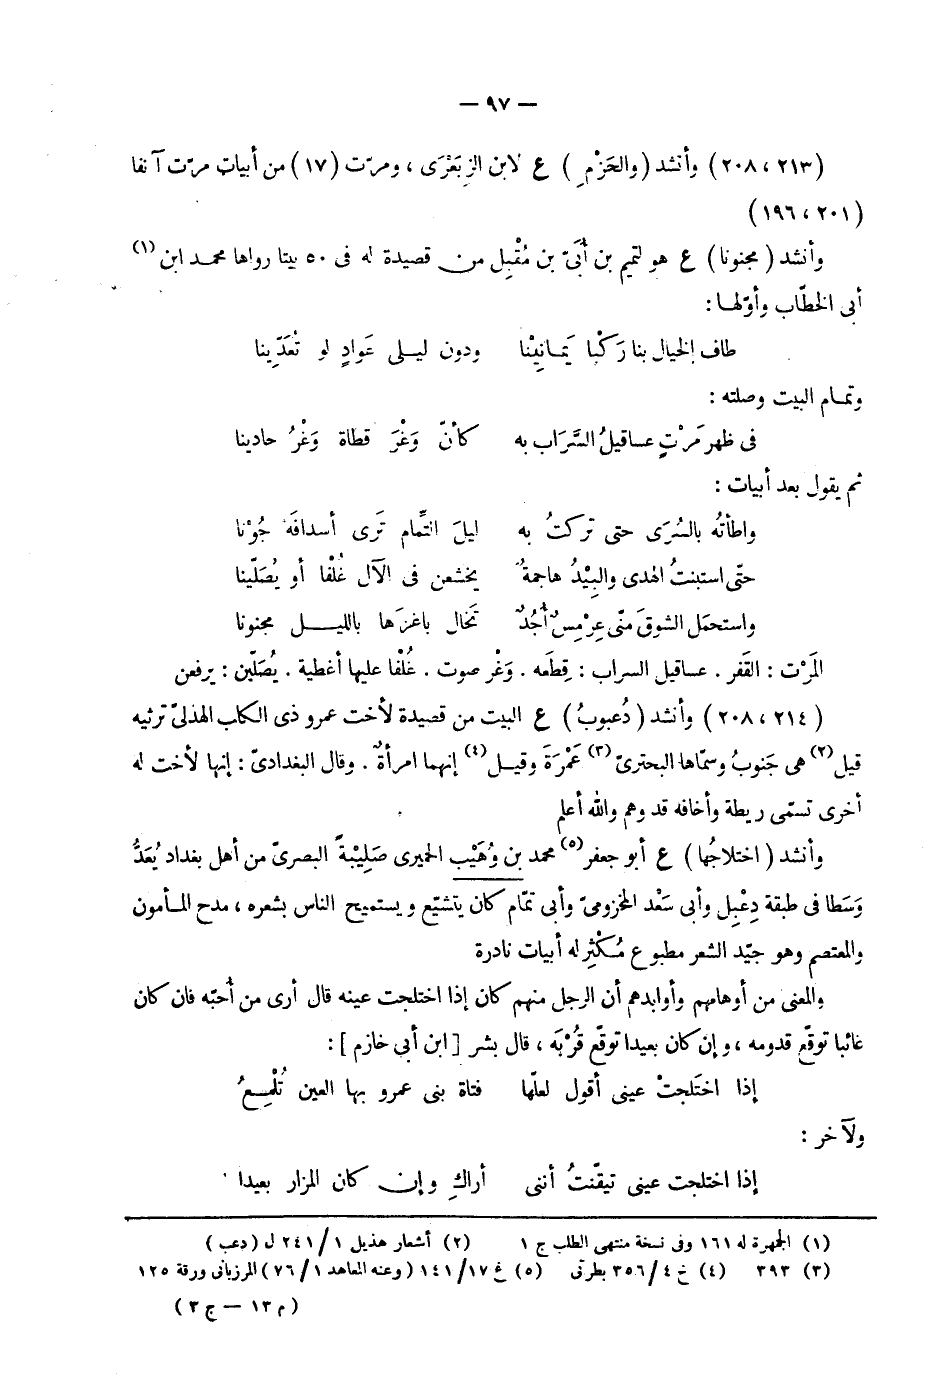 — ٩٧ —
(٢١٣ ، ٢٠٨) وأنشد (والحَزْمِ) ع لابن الزِبَعْرَى ، ومرّت (١٧) من أبيات مرّت آنفا
(٢٠١ ، ١٩٦)
وأنشد (مجنونا) ع هو لتميم بن أُبَىّ بن مُقْبِل من قصيدة له فى ٥٠ بيتا رواها محمد ابن (١)
أبى الخطّاب وأوّلها :
طاف الخيال بنا رَكْبا يَمانِيْنا ودون ليلى عَوادٍ لو تُعَدِّينا
وتمام البيت وصلته :
فى ظهر مَرْتٍ عساقيلُ السَّرَاب به كأنّ وَغْرَ قطاة وَغْرُ حادينا
ثم يقول بعد أبيات :
واطأتُه بالسُرَى حتى تركتُ به ليلَ التِّمام تَرَى أسدافَه جُوْنا
حتّى استبنتُ الهدى والبِيْدُ هاجمةٌ يخشعن فى الآل غُلْفا أو يُصَلّينا
واستحمَل الشوقَ منّى عِرْمِسٌ أُجُدٌ تَخال باغزَها بالليل مجنونا
المَرْت : القَفر . عساقيل السراب : قِطَعه . وَغْر صوت . غُلْفا عليها أغطية . يُصَلّين : يرفعن
(٢١٤ ، ٢٠٨) وأنشد (دُعبوبُ) ع البيت من قصيدة لأخت عمرو ذى الكاب الهذلىّ ترثيه
قيل (٢) هى جَنوبُ وسمّاها البحترىّ (٣) عَمْرَةَ وقيل (٤) إنهما امرأةٌ . وقال البغدادىّ : إنها لأخت له
أخرى تسمّى ريطة وأخافه قد وهم والله أعلم
وأنشد (اختلاجُها) ع أبو جعفر (٥) محمد بن وُهَيْب الحميرى صَلِيْبةً البصرىّ من أهل بغداد يُعَدُّ
وَسَطا فى طبقة دِعْبِل وأبى سَعْد المخزومىّ وأبى تمّام كان يتشيّع ويستميح الناس بشعره ، مدح المأمون
والمعتصم وهو جيّد الشعر مطبوع مُكْثِر له أبيات نادرة
والمعنى من أوهامهم وأوابدهم أن الرجل منهم كان إذا اختلجت عينه قال أرى من أُحبّه فان كان
غائبا توقّع قدومه ، وإن كان بعيدا توقّع قُرْبَه ، قال بشر [ابن أبي خازم] :
إذا اختَلجتْ عينى أقول لعلّها فتاة بنى عمرو بها العين تُلْمِعُ
ولآخر :
إذا اختلجت عينى تيقّنتُ أننى أراكِ وإن كان المزار بعيدا
(١) الجمهرة له ١٦١ وفى نسخة منتهى الطلب ج ١ (٢) أشعار هذيل ١/ ٢٤١ ل (دعب)
(٣) ٣٩٣ (٤) خ ٤/ ٣٥٦ بطرتى (٥) غ ١٧/ ١٤١ (وعنه المعاهد ١/ ٧٦) المرزبانى ورقة ١٢٥
(م ١٣ — ج ٣)